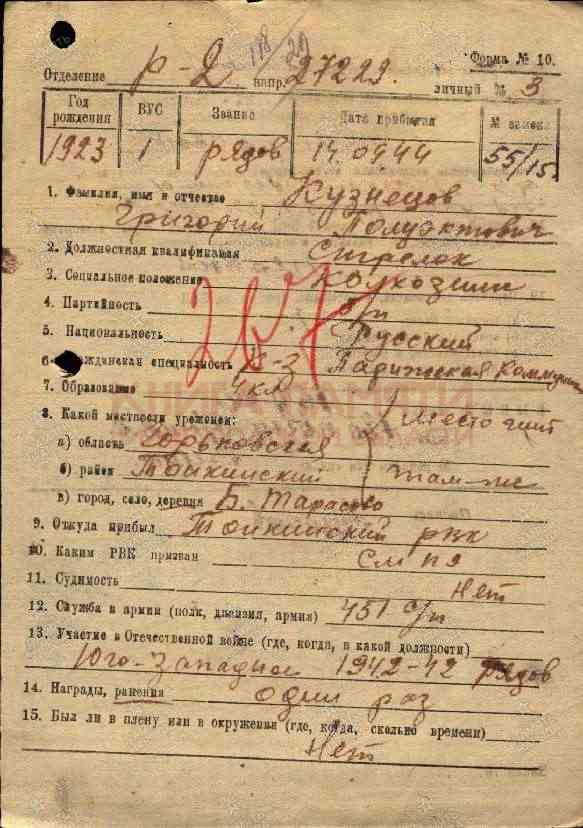 Форма № 10.
Отделение р-2 118/29 напр. 27229. личный № 3
Год рождения ВУС Звание Дата прибытия № замка
1923 1 рядов 14.0444 55/15
1. Фамилия, имя и отчество Кузнецов
Григорий Полуэктович
2. Должностная квалификация Стрелок
3. Социальное положение Колхозник
4. Партийность б/п
5. Национальность Русский
6. Гражданская специальность к-з Парижская Коммуна
7. Образование 4 кл
8. Какой местности уроженец: Место жит
а) область Горьковская
б) район Тонкинский там-же
в) город, село, деревня Б. Тарасово
9. Откуда прибыл Тонкинский рвк
10. Каким РВК призван См п 9
11. Судимость Нет
12. Служба в армии (полк, дивизия, армия) 451 с/п
13. Участие в Отечественной войне (где, когда, в какой должности)
Юго-Западном 1942-42 рядов
14. Награды, ранения один раз
15. Был ли в плену или в окружении (где, когда, сколько времени)
Нет
КНИГА ПАМЯТИ